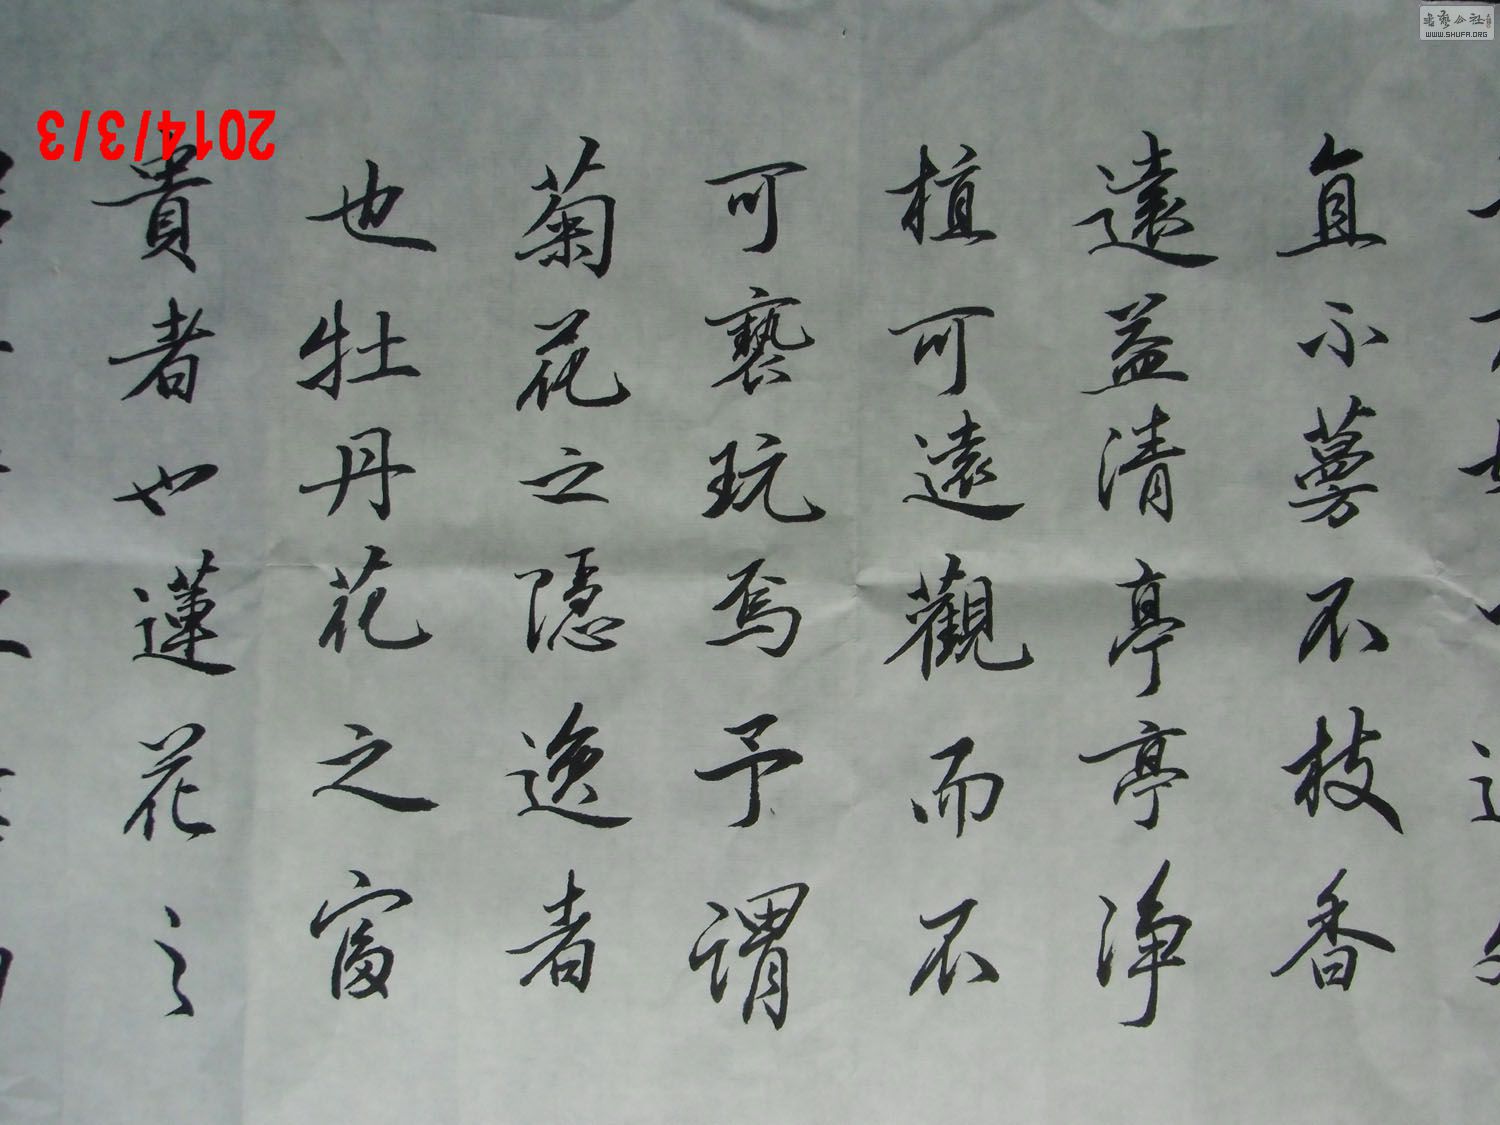 直不蔓不枝香
遠益清亭亭净
植可遠觀而不
可褻玩焉予謂
菊花之隱逸者
也牡丹花之富
貴者也蓮花之
2014/3/3
WWW.SHUFA.ORG